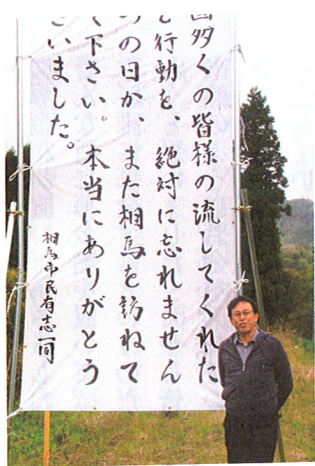 多くの皆様の流してくれた
行動を、絶対に忘れません
の日か、また相馬を訪ねて
下さい。本当にありがとう
いました。
相馬市民有志一同